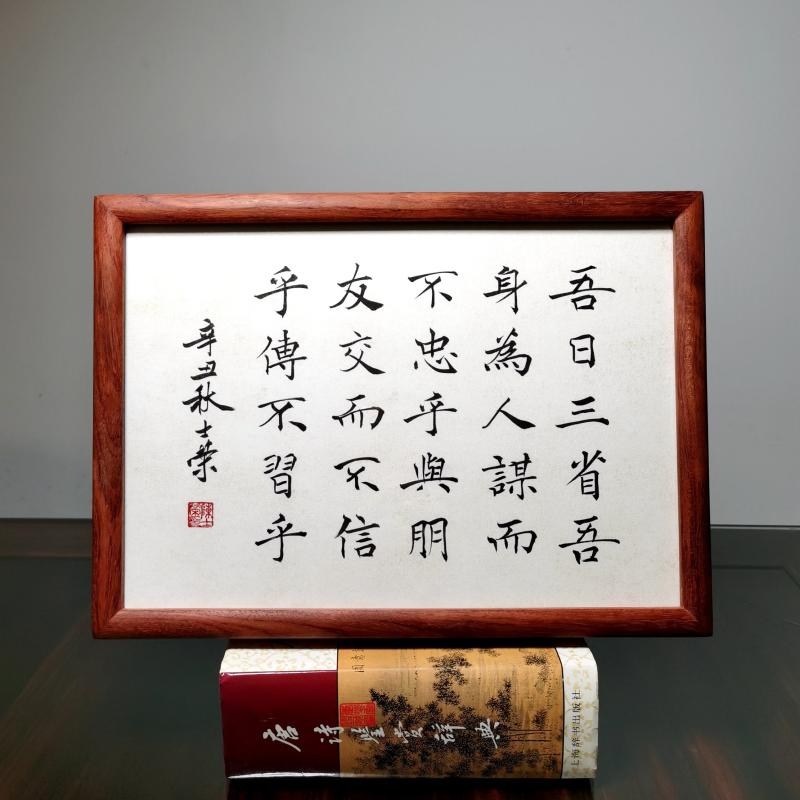 吾日三省吾
身為人謀而
不忠乎與朋
友交而不信
乎傳不習乎
辛丑秋士榮
唐诗鉴赏辞典
上海辞书出版社